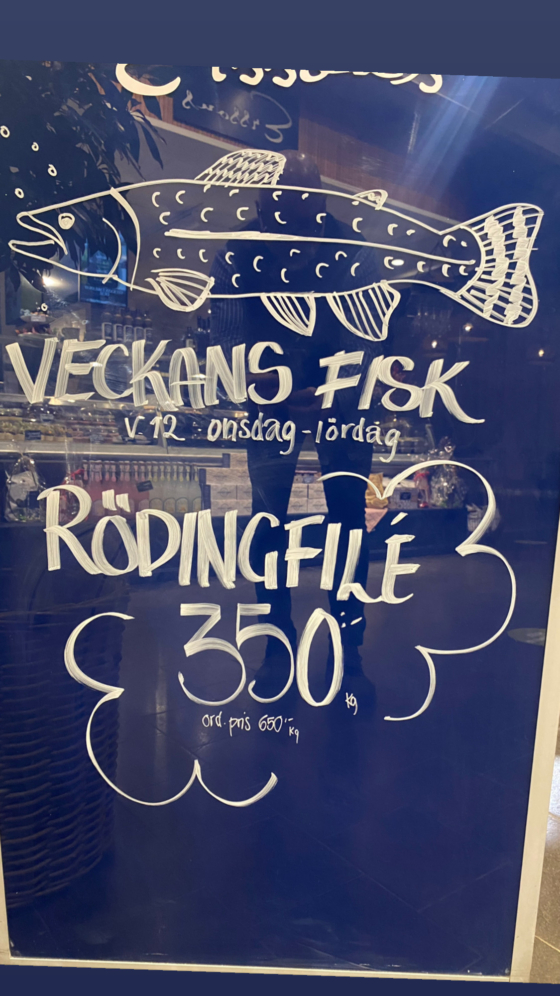 VECKANS FISK
v 12 onsdag-lördag
RÖDINGFILÉ
350:-
kg
ord. pris 650:- kg